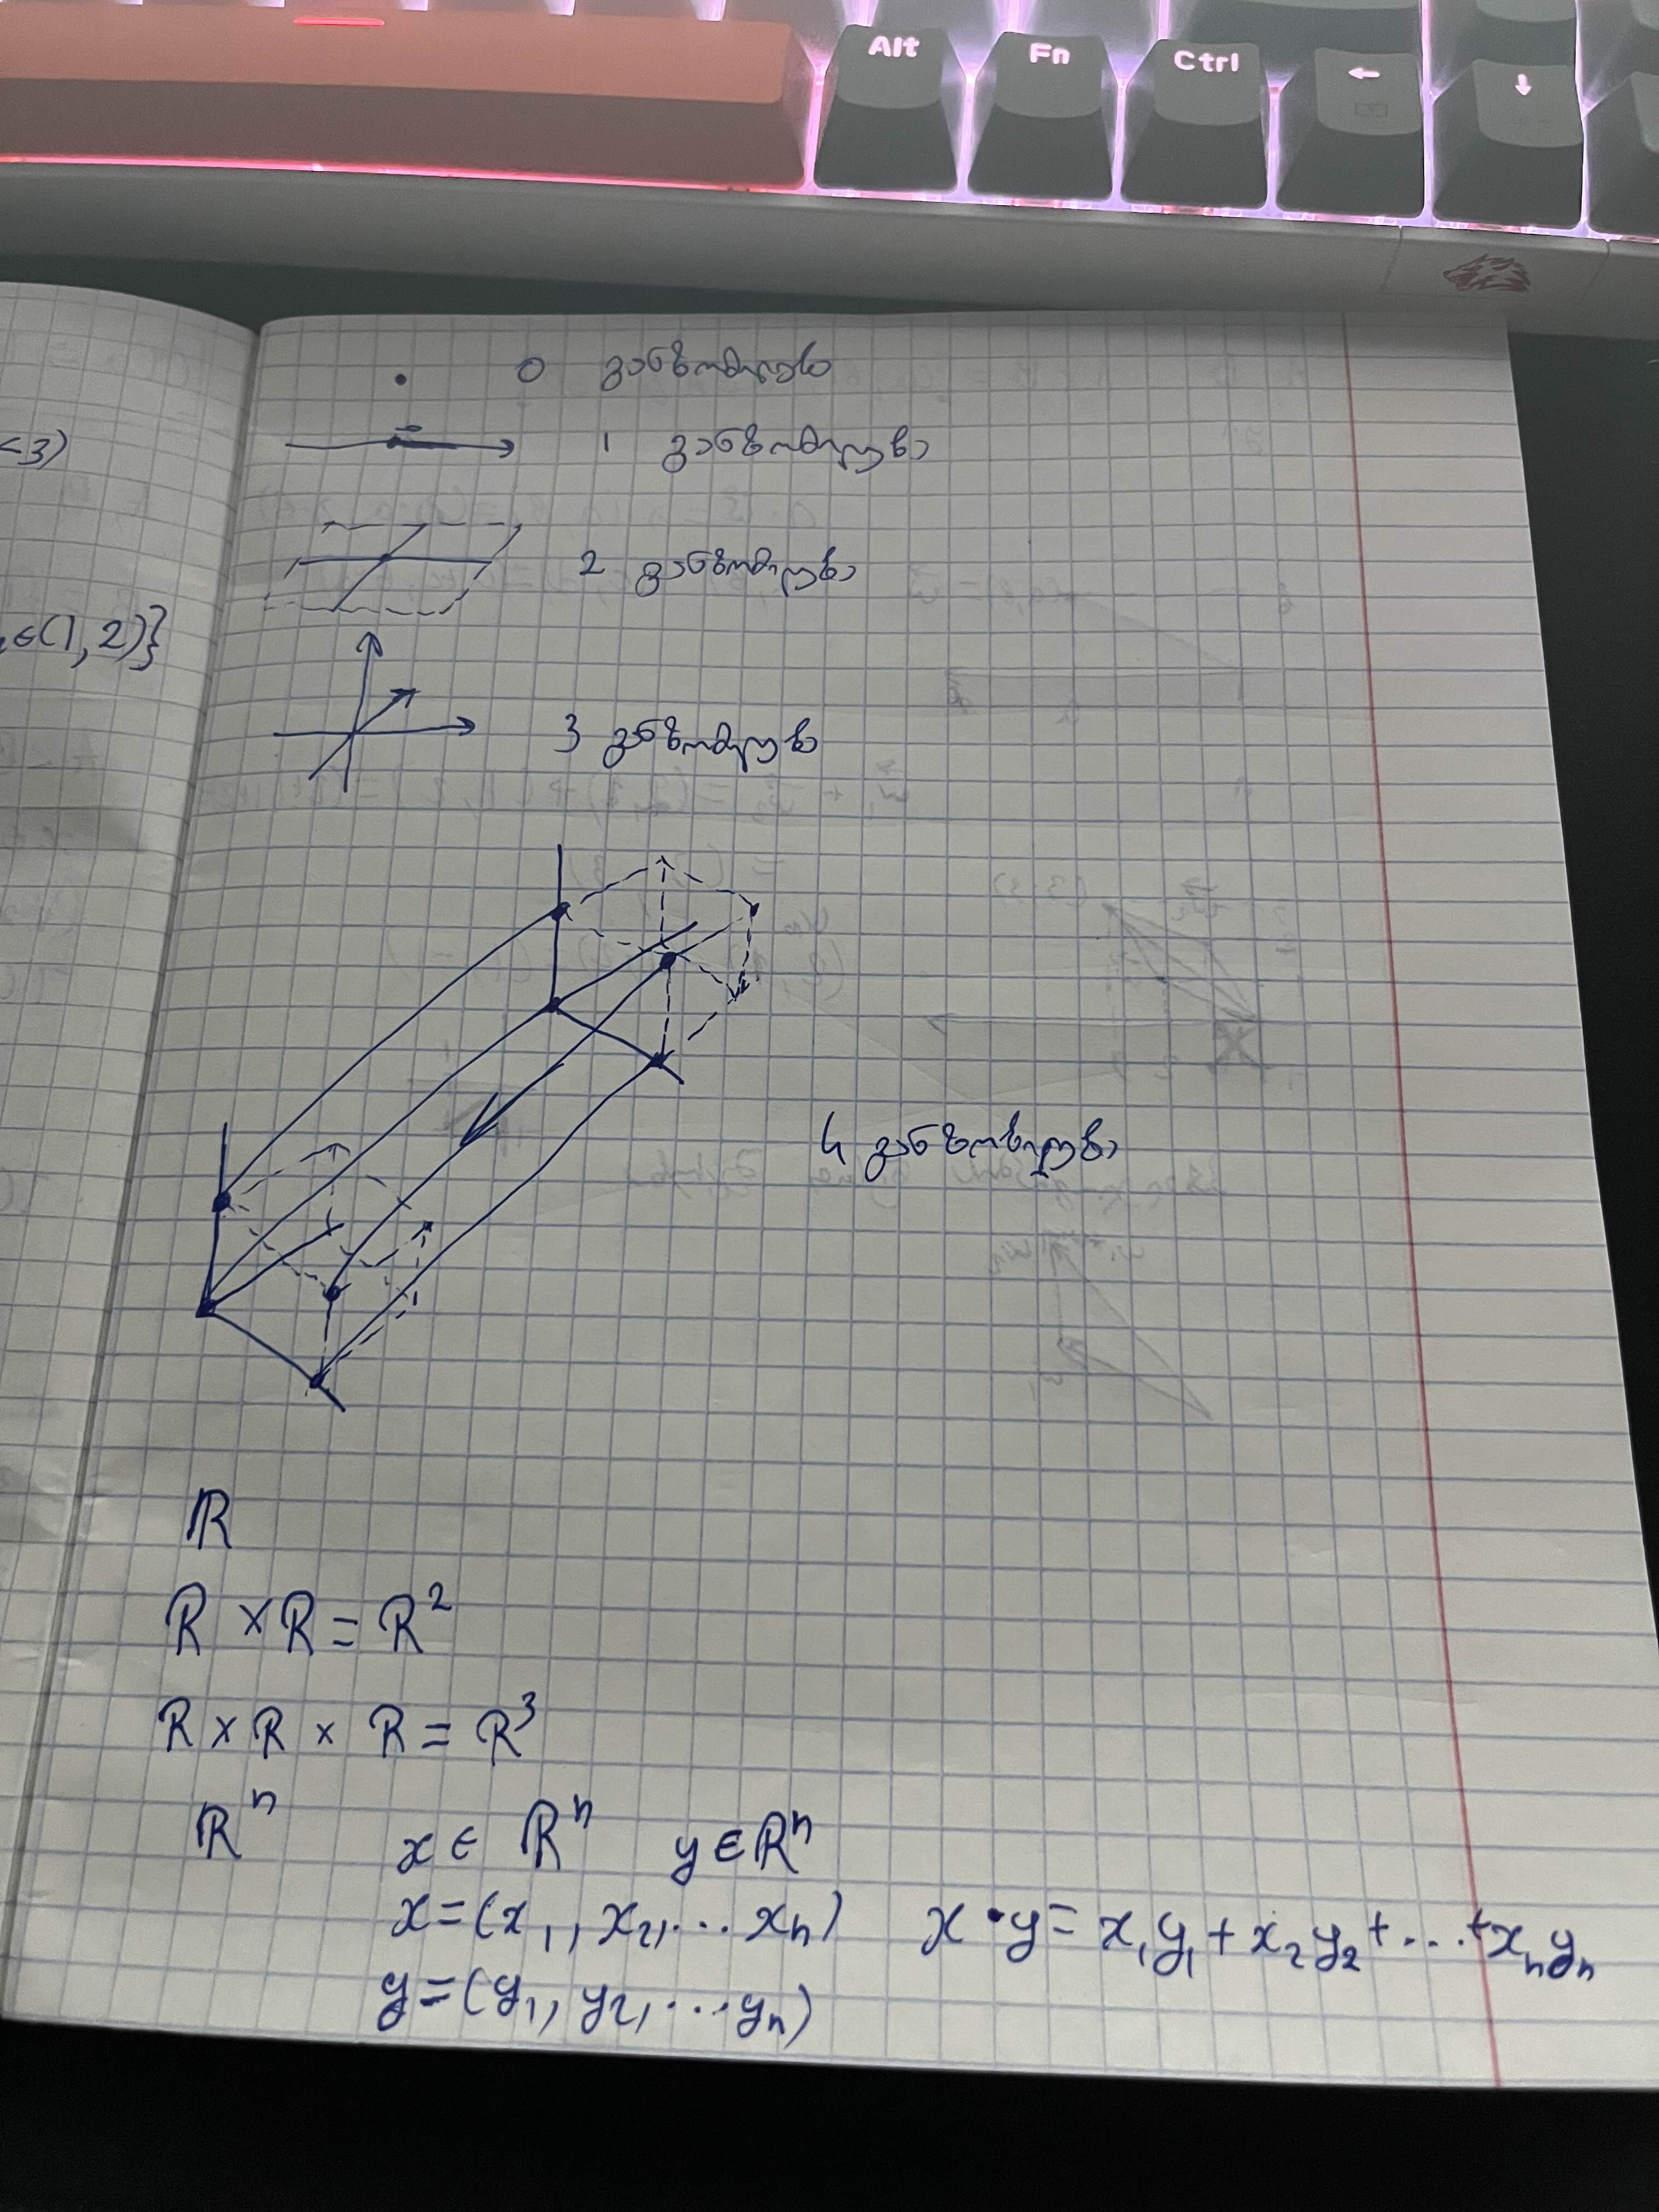 Alt Fn Ctrl ← ↓
0 განზომილება
1 განზომილება
2 განზომილება
3 განზომილება
4 განზომილება
<3)
∈(1,2)}
ℝ
ℝ × ℝ = ℝ²
ℝ × ℝ × ℝ = ℝ³
ℝⁿ x ∈ ℝⁿ y ∈ ℝⁿ
x = (x₁, x₂, ... xₙ) x · y = x₁y₁ + x₂y₂ + ... + xₙyₙ
y = (y₁, y₂, ... yₙ)